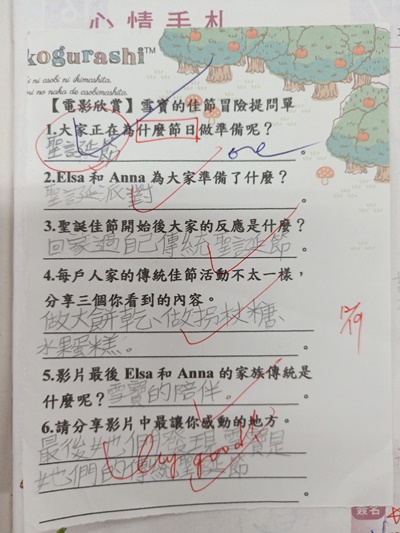 心情手札
kogurashi™
ni asobi ni ikimashita.
no naka de asobimashita.
【電影欣賞】雪寶的佳節冒險提問單
1.大家正在為什麼節日做準備呢？
聖誕節。
2.Elsa 和 Anna 為大家準備了什麼？
聖誕派對。
3.聖誕佳節開始後大家的反應是什麼？
回家過自己傳統聖誕節。
4.每戶人家的傳統佳節活動不太一樣，
分享三個你看到的內容。
做大餅乾、做拐杖糖、
水果蛋糕。
5.影片最後 Elsa 和 Anna 的家族傳統是
什麼呢？雪寶的陪伴。
6.請分享影片中最讓你感動的地方。
最後她們發現雪寶是
她們的傳統聖誕節
good!
12/19
簽名